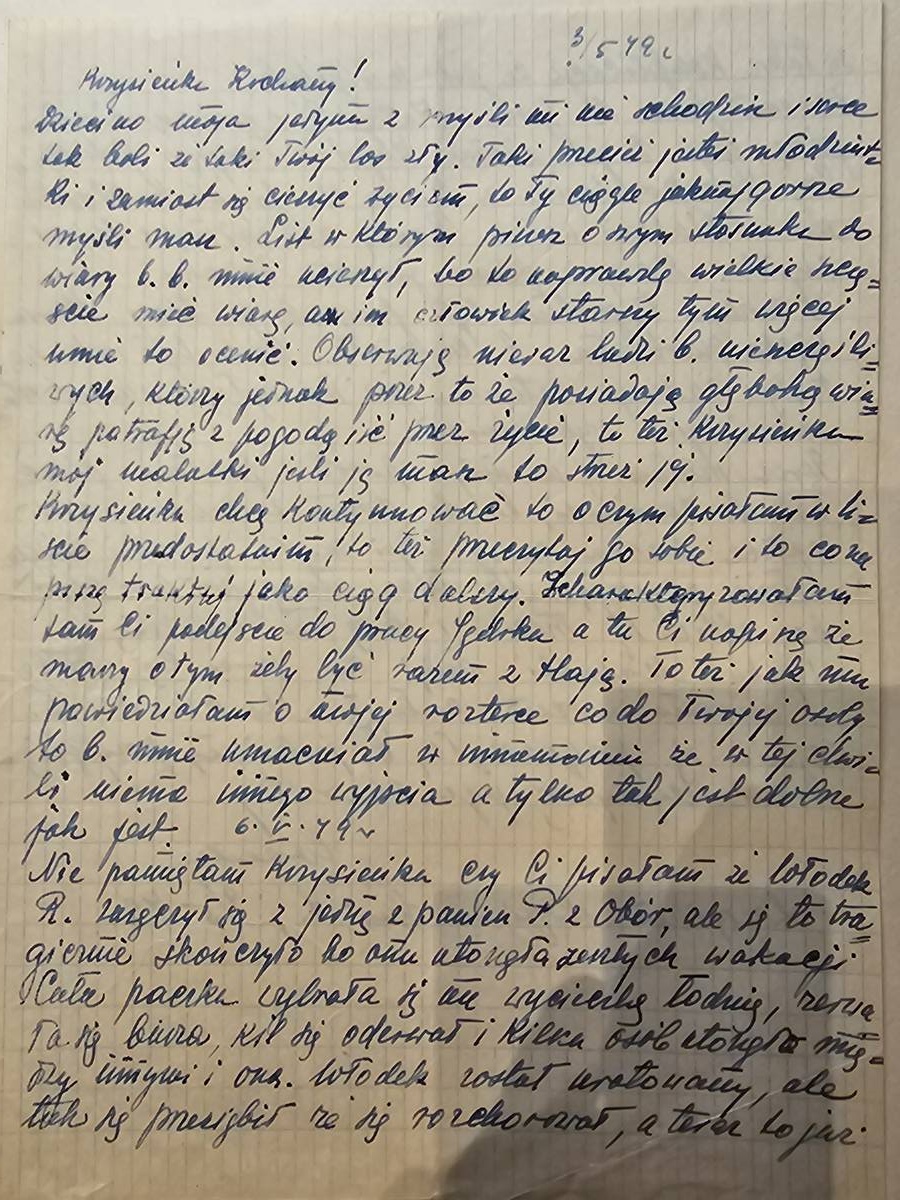 3/5 49 r
Krzysieńku Kochany!
Dziecino moja jedyna z myśli mi nie schodzisz i serce
tak boli że taki Twój los zły. Taki przecież jesteś młodziut=
ki i zamiast się cieszyć życiem, to Ty ciągle jaknajgorsze
myśli masz. List w którym piszesz o swym stosunku do
wiary b. b. mnie ucieszył, bo to naprawdę wielkie szczę=
ście mieć wiarę, im człowiek starszy tym więcej
umie to ocenić. Obserwuję nieraz ludzi b. nieszczęśli=
wych, którzy jednak przez to że posiadają głęboką wia=
rę potrafją z pogodą iść przez życie, to też Krzysieńku
mój malutki jeśli ją masz to strzeż jej.
Krzysieńku chcę kontynuować to o czym pisałam w li=
ście przedostatnim, to też przeczytaj go sobie i to co na
piszę traktuj jako ciąg dalszy. Scharakteryzowałam
tam Ci podejście do pracy a tu Ci napiszę że
marzy o tym żeby być razem z Hają. To też jak mu
powiedziałam o mojej rozterce co do Twojej osoby
to b. mnie umacniał w mniemaniu że w tej chwi=
li niema innego wyjścia a tylko tak jest dobrze
jak jest. 6. V. 49 r
Nie pamiętam Krzysieńku czy Ci pisałam że Włodek
R. zaręczył się z jedną z panien P. z Obór, ale się to tra=
gicznie skończyło bo ona utonęła zeszłych wakacji
Cała paczka wybrała się na wycieczkę łodzią, zerwa=
ła się burza, kil się oderwał i kilka osób utonęło mię=
dzy innymi i ona. Włodek został uratowany, ale
tak się przeziębił że się rozchorował, a teraz to już